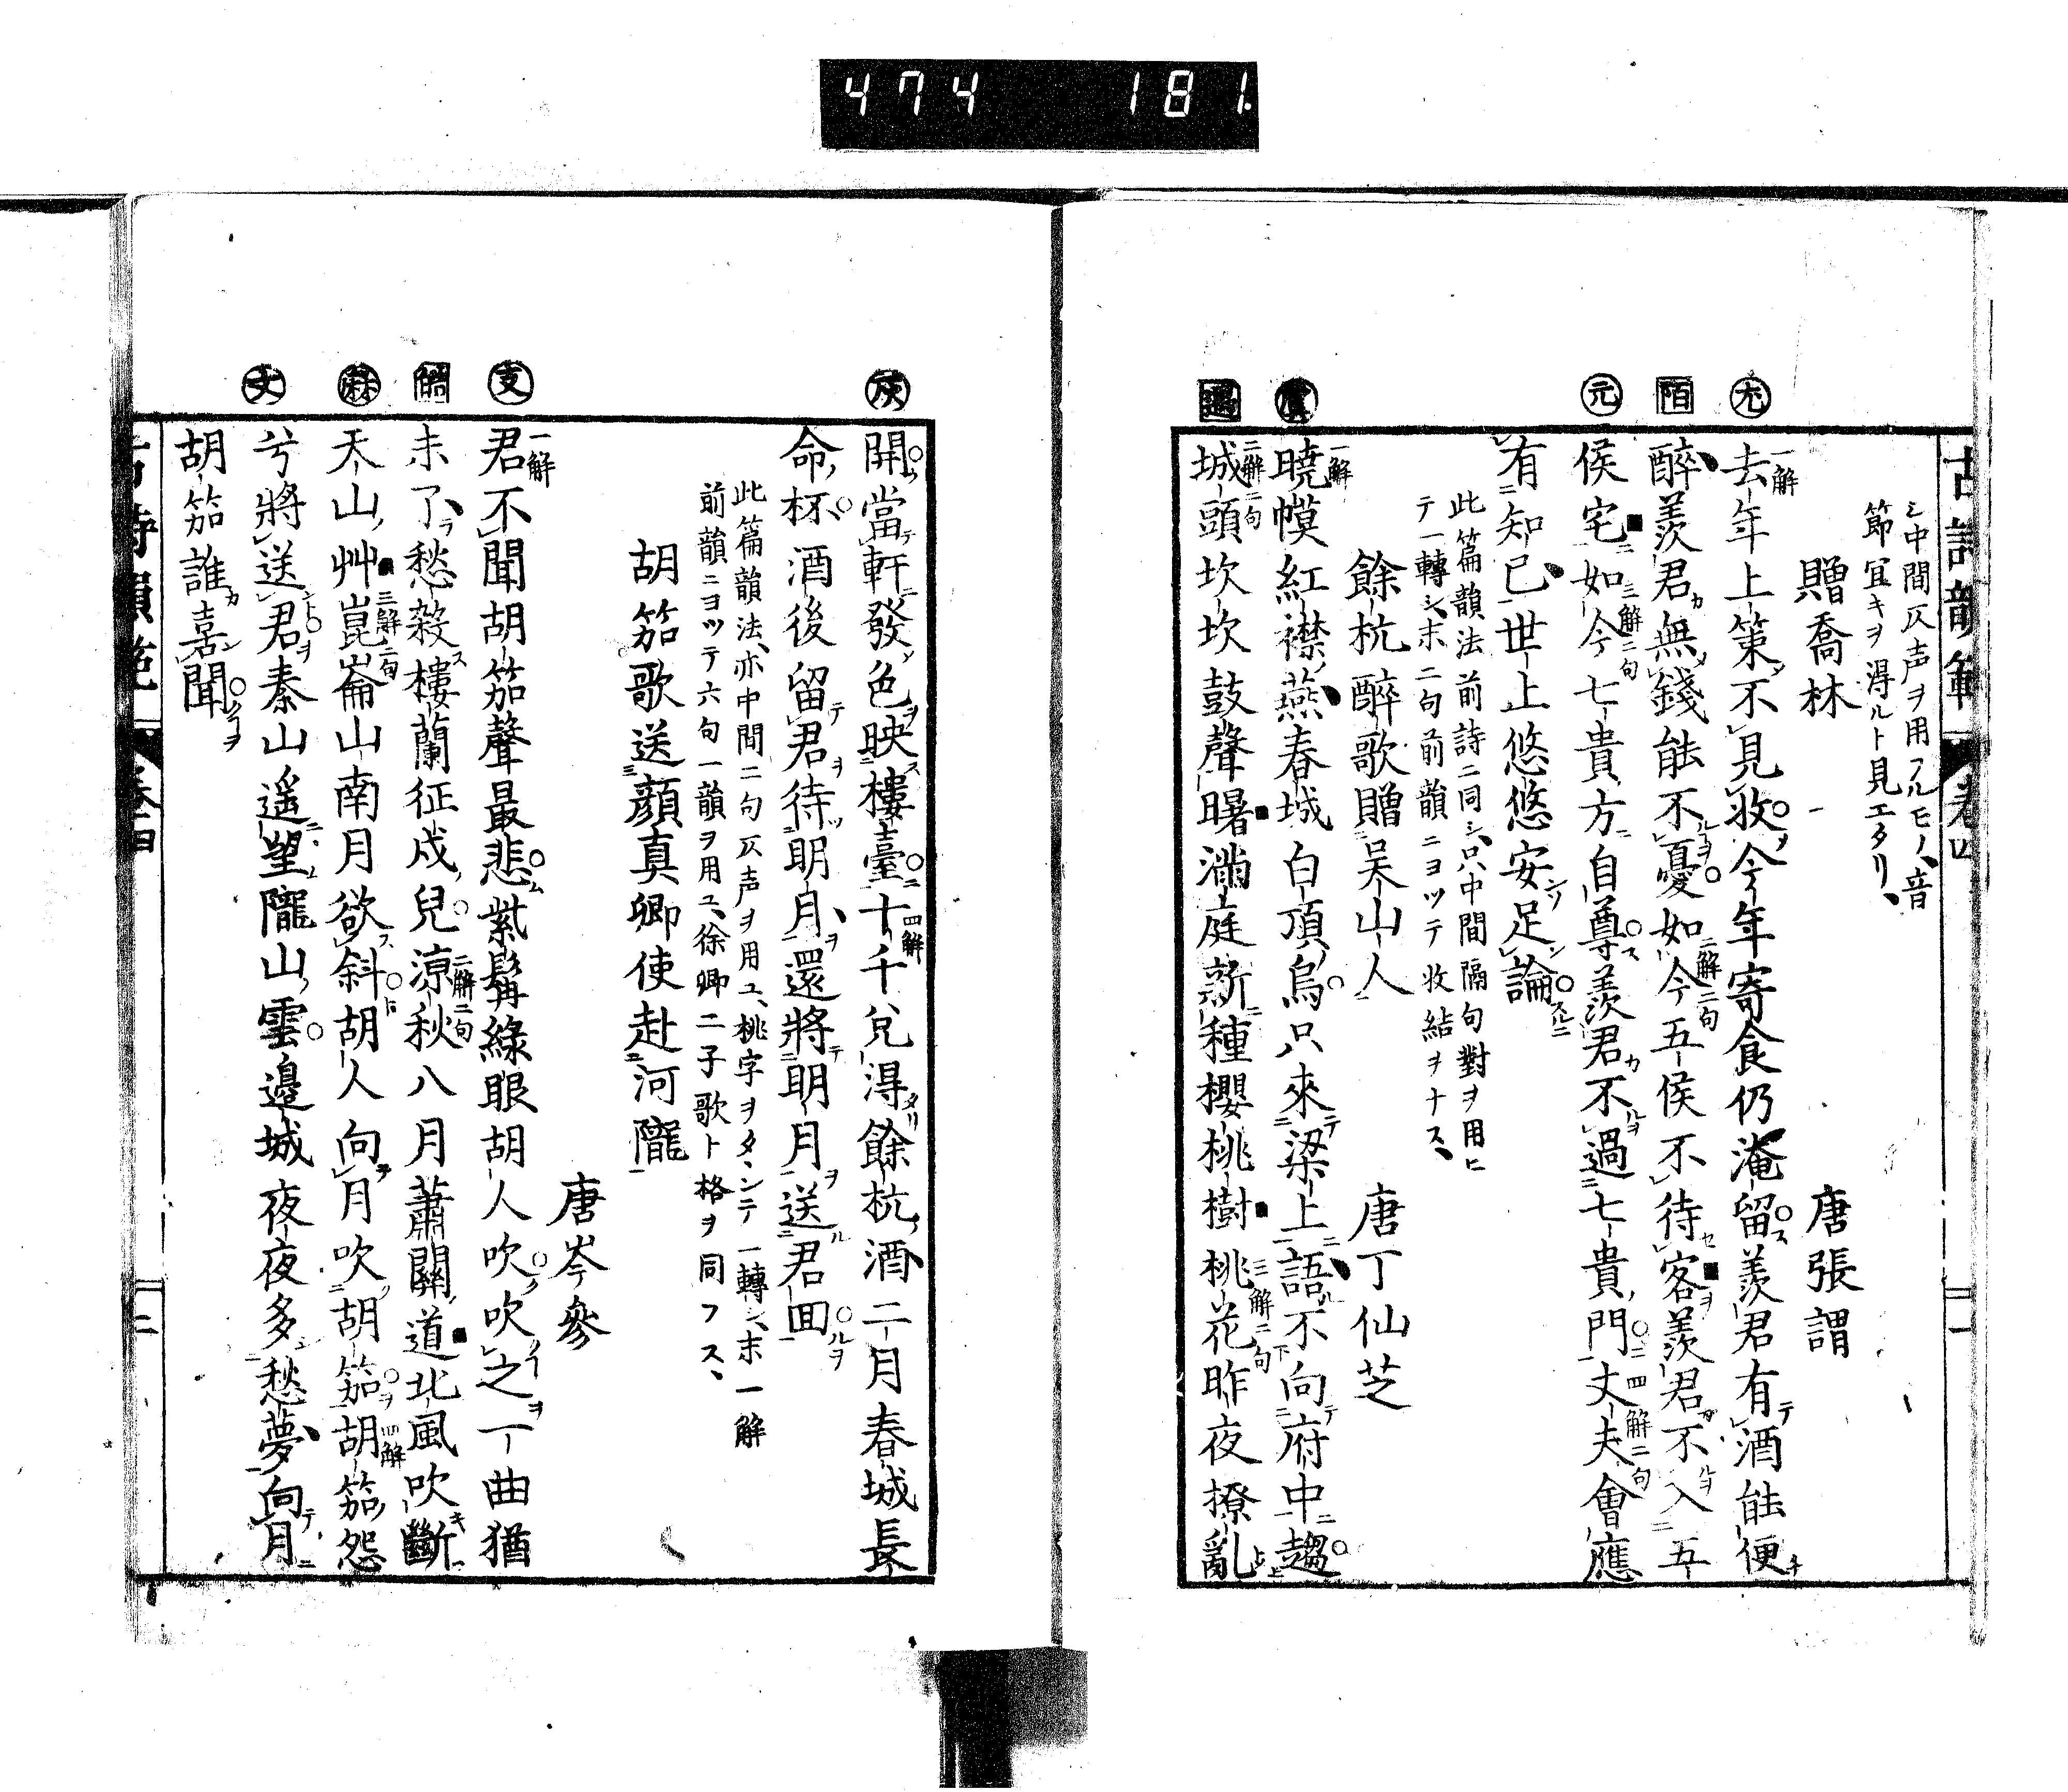 474 181.
古詩韻範 卷四 一
シ中間仄声ヲ用フルモノ、音
節宜キヲ得ルト見エタリ、
贈喬林 唐張謂
尤 陌 元
一解 去年上策不見收今年寄食仍淹留羨君有酒能便
醉羨君無錢能不憂如 二解二句 今五侯不待客羨君不入五
侯宅如 三解二句 今七貴方自尊羨君不過七貴門丈 四解二句 夫會應
有知己世上悠悠安足論
此篇韻法前詩ニ同シ、只中間隔句對ヲ用ヒ
テ一轉シ、末二句前韻ニヨツテ收結ヲナス、
餘杭醉歌贈吴山人 唐丁仙芝
虞 遇
一解 曉幙紅襟燕春城白頂烏只來梁上語不向府中趨
二解二句 城頭坎坎鼓聲曙滿庭新種櫻桃樹桃 三解二句 花昨夜撩亂
灰
開當軒發色映樓臺十 四解 千兌得餘杭酒二月春城長
命杯酒後留君待明月還將明月送君回
此篇韻法、亦中間二句仄声ヲ用ユ、桃字ヲタヽンテ一轉シ、末一解
前韻ニヨツテ六句一韻ヲ用ユ、徐卿二子歌ト格ヲ同フス、
胡笳歌送顔真卿使赴河隴
唐岑參
支 麻 文
一解 君不聞胡笳聲最悲紫髯綠眼胡人吹吹之一曲猶
未了愁殺樓蘭征戍兒涼 二解二句 秋八月蕭關道北風吹斷
天山艸崑 三解二句 崙山南月欲斜胡人向月吹胡笳胡 四解 笳怨
兮將送君秦山遥望隴山雲邊城夜夜多愁夢向月
胡笳誰喜聞
古詩韻範 卷四 二